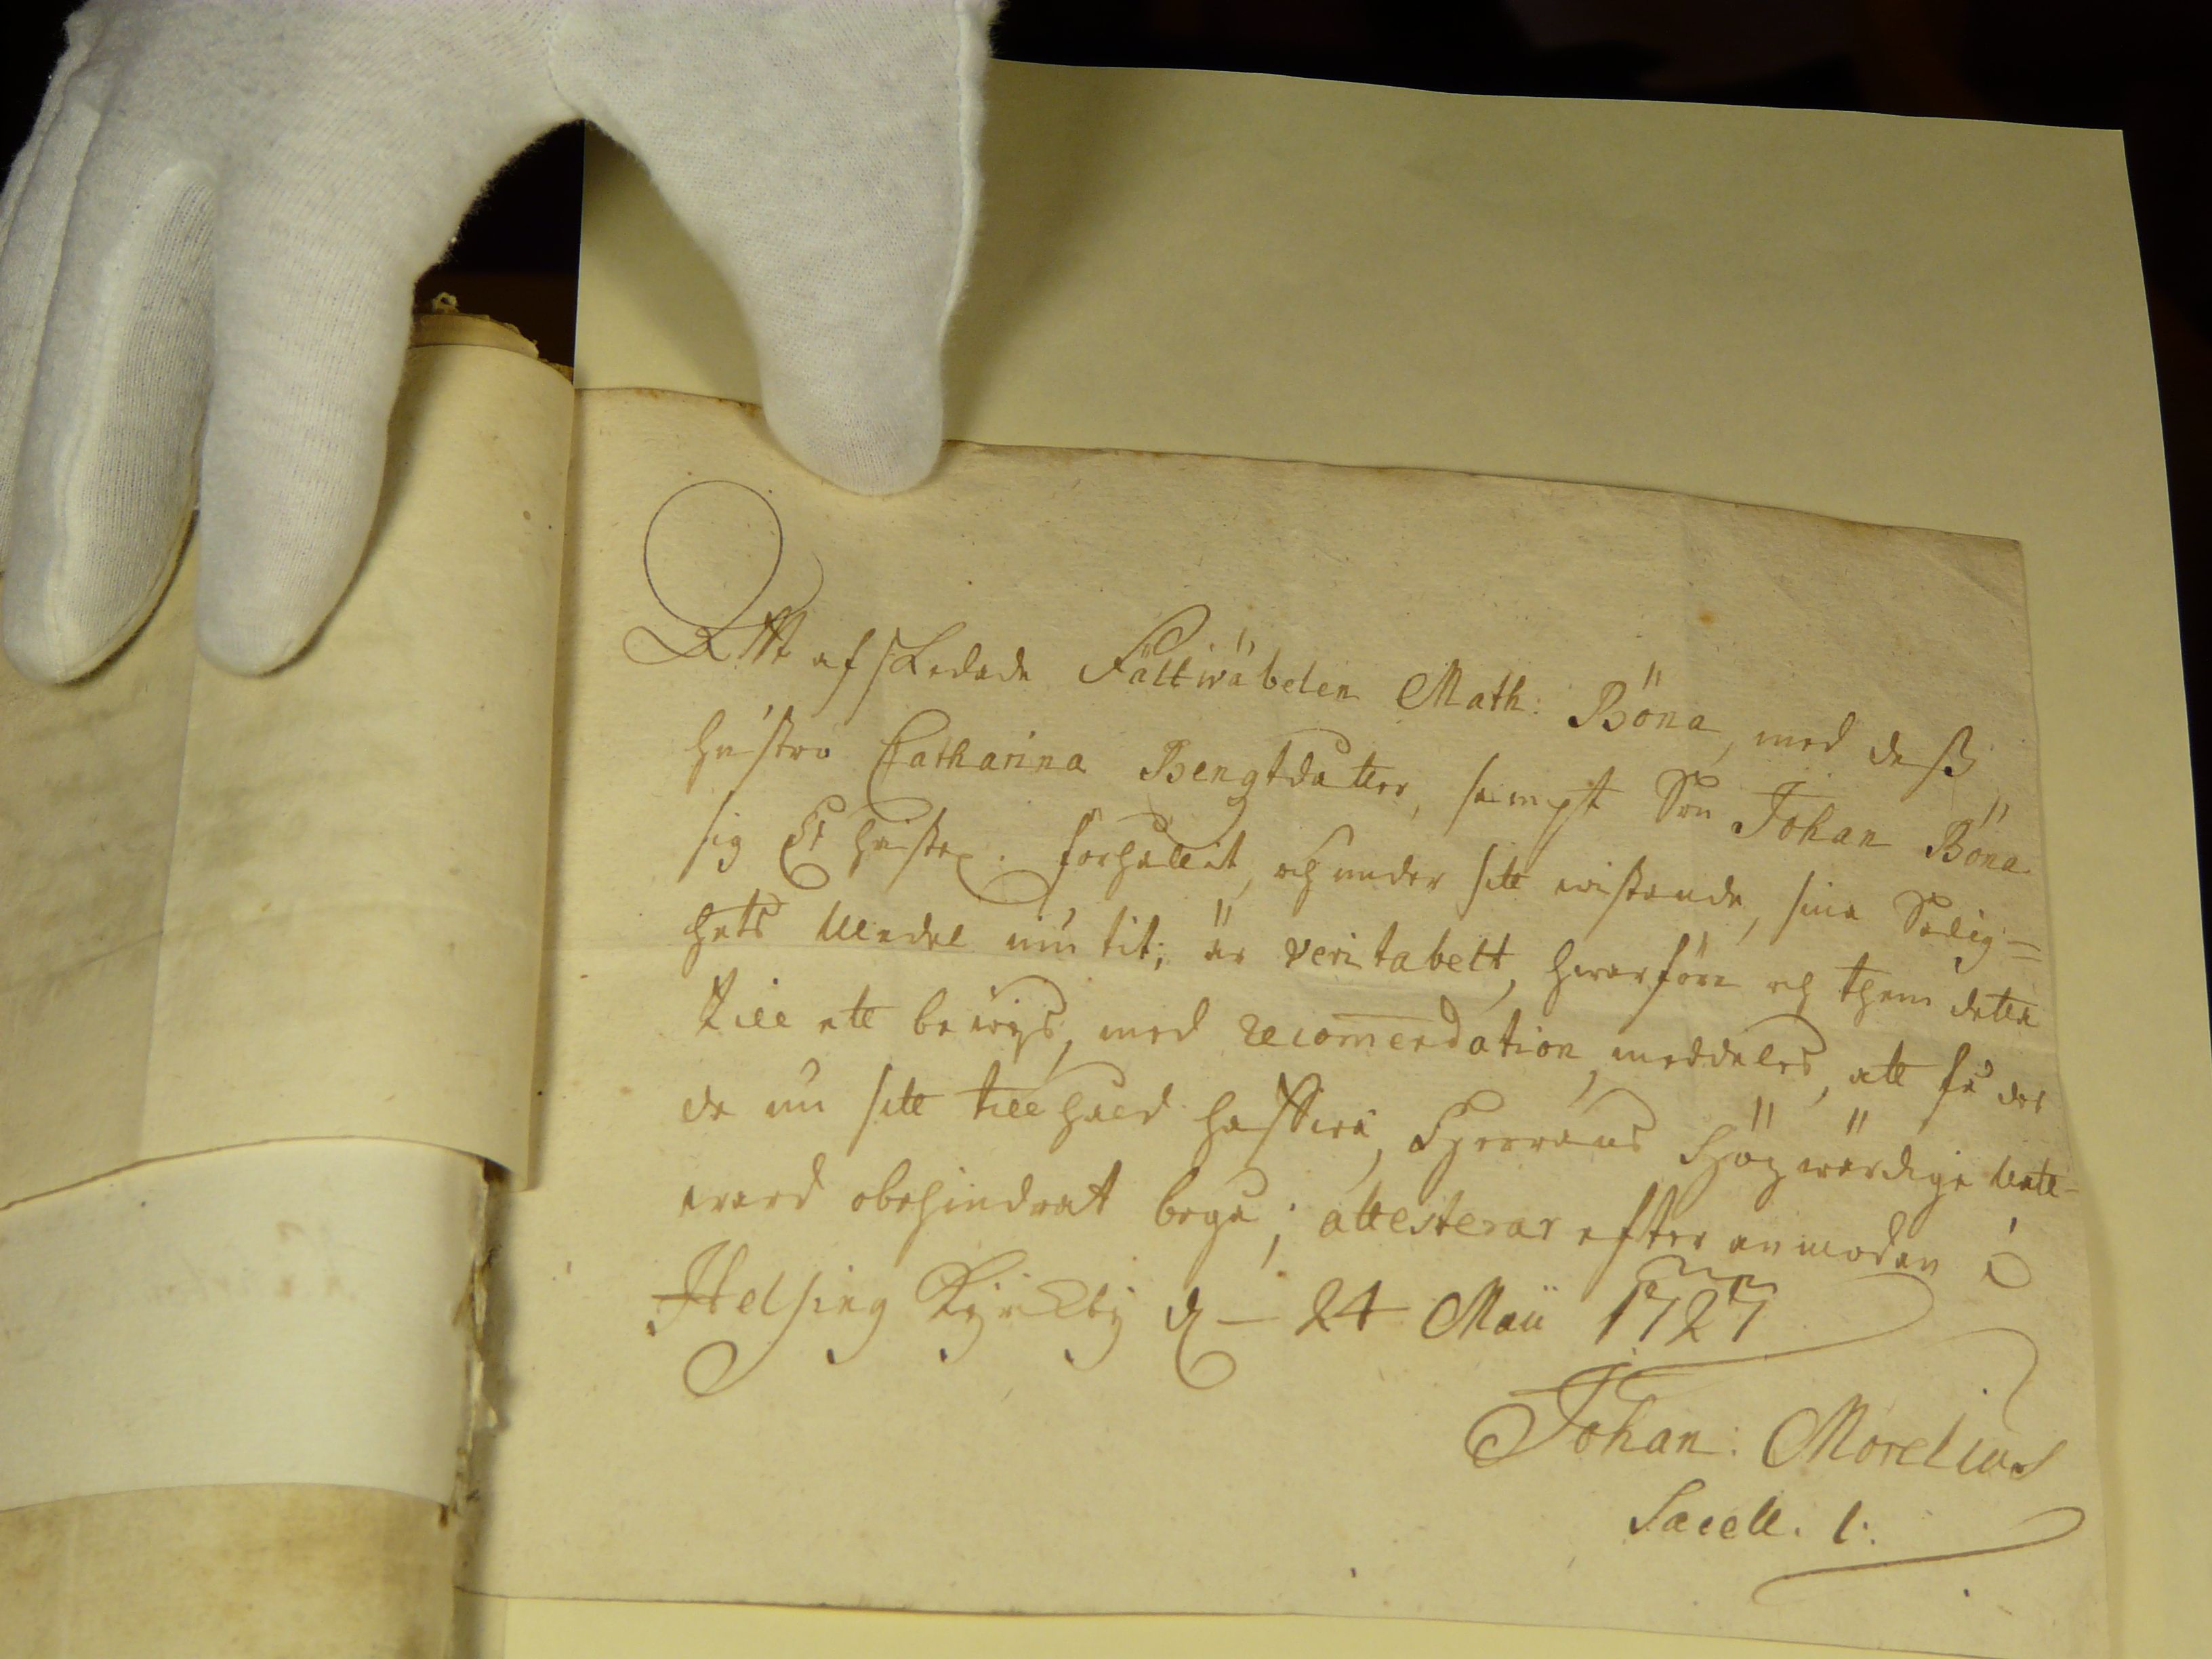 Att afskedade Fältwäbelen Math: Böna, med dess
hustro Catharina Bengtdatter, sampt Son Johan Böna
sig Christel. forhållit, och under sitt wistande, sina Salig=
hets Medel niutit; är veritabelt, hwarföre och them detta
till ett bewijs, med recomendation, meddeles, att få der
de nu sitt tillhåld haffwa, Herrans Högwärdige Natt-
ward obehindrat begå; attesterar efter anmodan
Helsing Kyrckby d - 24 Maii 1727
Johan: Morelius
Sacell. l: